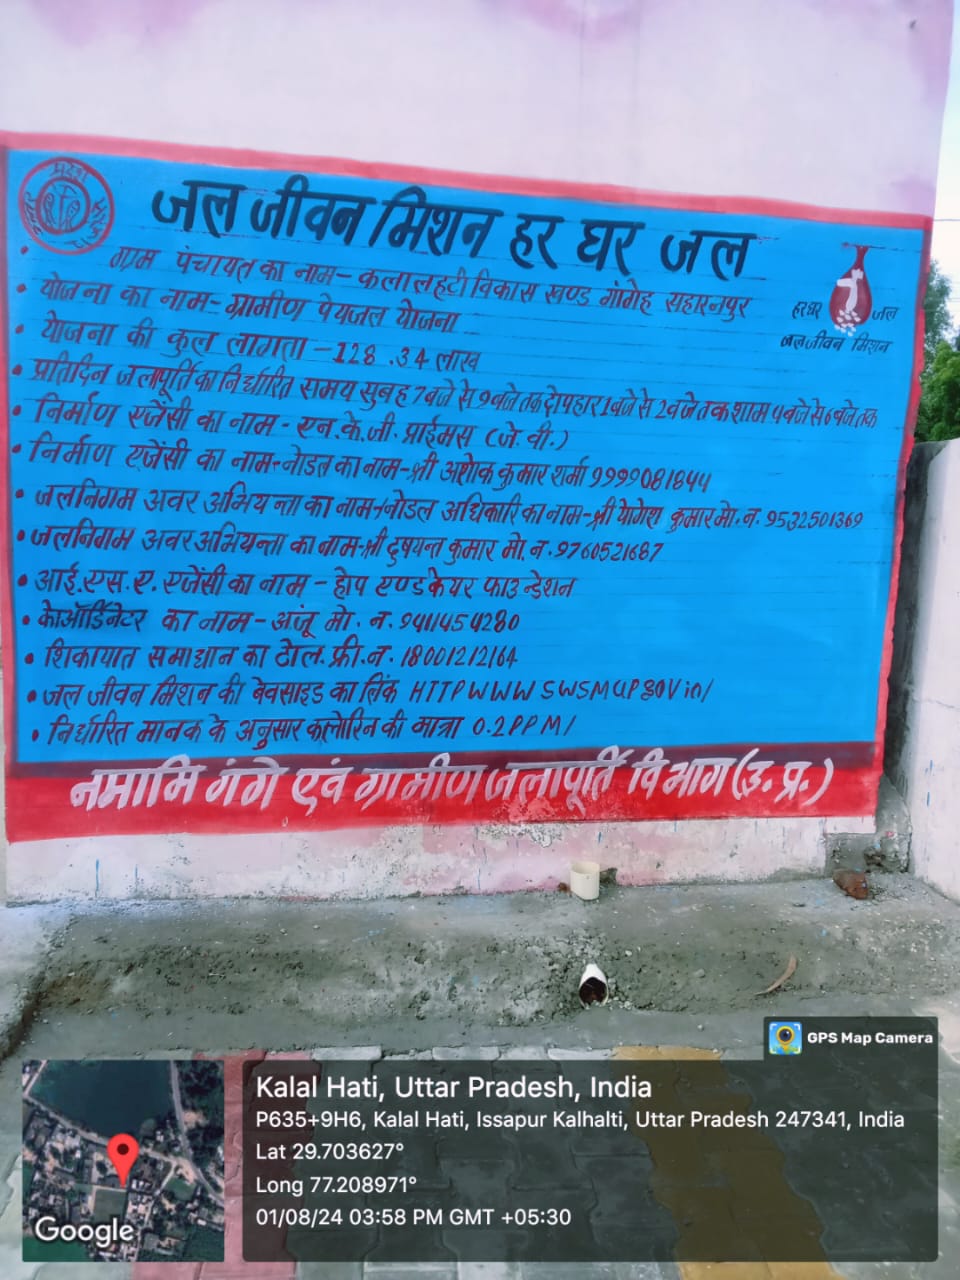 जल जीवन मिशन हर घर जल
ग्राम पंचायत का नाम – कलालहटी विकास खण्ड गंगोह सहारनपुर
योजना का नाम – ग्रामीण पेयजल योजना
योजना की कुल लागता – 128.34 लाख
हर घर जल
जल जीवन मिशन
प्रतिदिन जलापूर्ति का निर्धारित समय सुबह 7 बजे से 9 बजे तक दोपहार 1 बजे से 2 बजे तक शाम 4 बजे से 6 बजे तक
निर्माण एजेंसी का नाम - एन.के.जी. प्राईमस (जे.वी.)
निर्माण एजेंसी का नाम + नोडल का नाम - श्री अशोक कुमार शर्मा 9999081844
जलनिगम अवर अभियन्ता का नाम + नोडल अधिकारि का नाम - श्री योगेश कुमार मो. न. 9532501369
जलनिगम अवर अभियन्ता का नाम - श्री दुष्यन्त कुमार मो. न. 9760521687
आई.एस.ए. एजेंसी का नाम - होप एण्ड केयर फाउन्डेशन
कोऑर्डिनेटर का नाम - अंजू मो. न. 9411454280
शिकायात समाधान का टोल.फ्री.न. 18001212164
जल जीवन मिशन की बेवसाइड का लिंक HTTPWWW SWSMUPgOVin/
निर्धारित मानक के अनुसार क्लोरिन की मात्रा 0.2PPM/
नमामि गंगे एवं ग्रामीण जलापूर्ति विभाग (उ.प्र.)
GPS Map Camera
Kalal Hati, Uttar Pradesh, India
P635+9H6, Kalal Hati, Issapur Kalhalti, Uttar Pradesh 247341, India
Lat 29.703627°
Long 77.208971°
01/08/24 03:58 PM GMT +05:30
Google